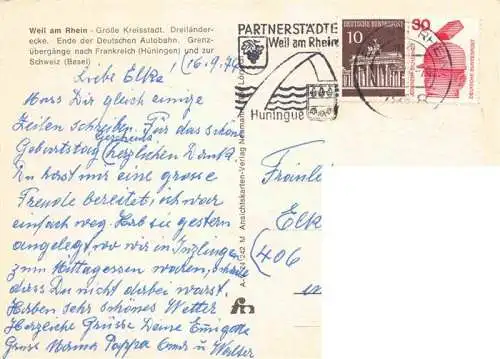 Weil am Rhein - Große Kreisstadt. Dreiländer-
ecke. Ende der Deutschen Autobahn. Grenz-
übergänge nach Frankreich (Hüningen) und zur
Schweiz (Basel)
PARTNERSTÄDTE
Weil am Rhein
Huningue
10
DEUTSCHE BUNDESPOST
30
DEUTSCHE BUNDESPOST
Liebe Elke! 16.9.74
Muss Dir gleich einige
Zeilen schreiben. Für das schöne
Geburtstag Geschenk
herzlichen Dank.
Du hast mir eine grosse
Freude bereitet, ich war
einfach weg. Hab sie gestern
angelegt, wo wir in Inzlingen
zum Mittagessen waren, schade
dass Du nicht dabei warst.
Haben sehr schönes Wetter
Herzliche Grüsse Deine
Grüse Mama Pappa Oma u Walter
Ansichtskarten-Verlag
Fräulein
Elke
(406